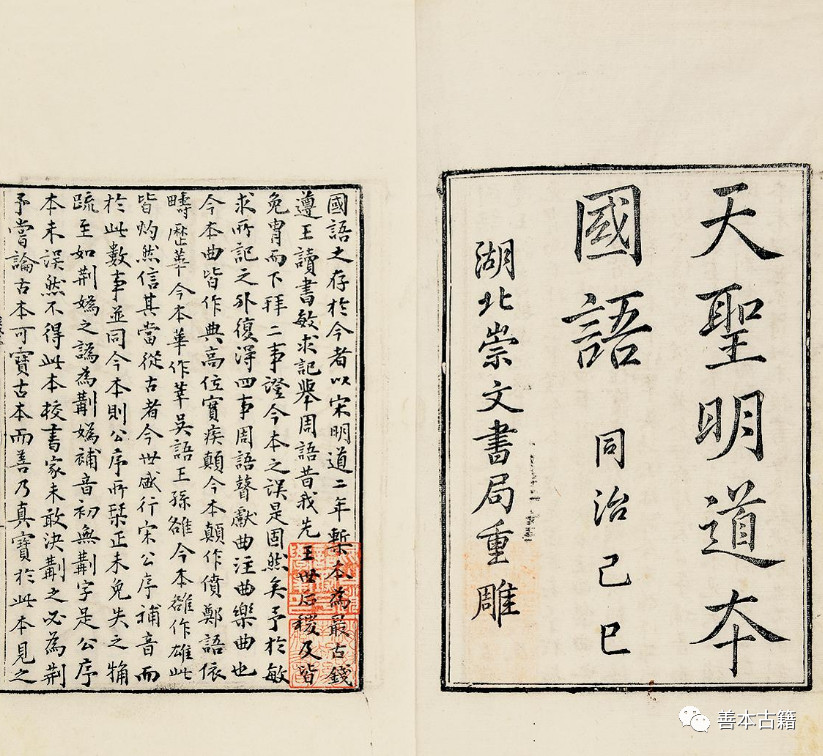 天聖明道本
國語 同治己巳
湖北崇文書局重雕
國語之存於今者以宋明道二年槧本為最古錢
遵王讀書敏求記舉周語昔我先王世后稷及皆
免冑而下拜二事證今本之誤是固然矣予於敏
求所記之外復得四事周語瞽獻曲注曲樂曲也
今本曲皆作典高位實疾顛今本顛作僨鄭語依
疇歷華今本華作莘吳語王孫雒今本雒作雄此
皆灼然信其當從古者今世盛行宋公序補音而
於此數事並同今本則公序所栞正未免失之觕
疏至如荆嬀之譌為嬀補音初無字是公序
本未誤然不得此本校書家未敢決之必為荆
予嘗論古本可寶古本而善乃真寶於此本見之
善本古籍